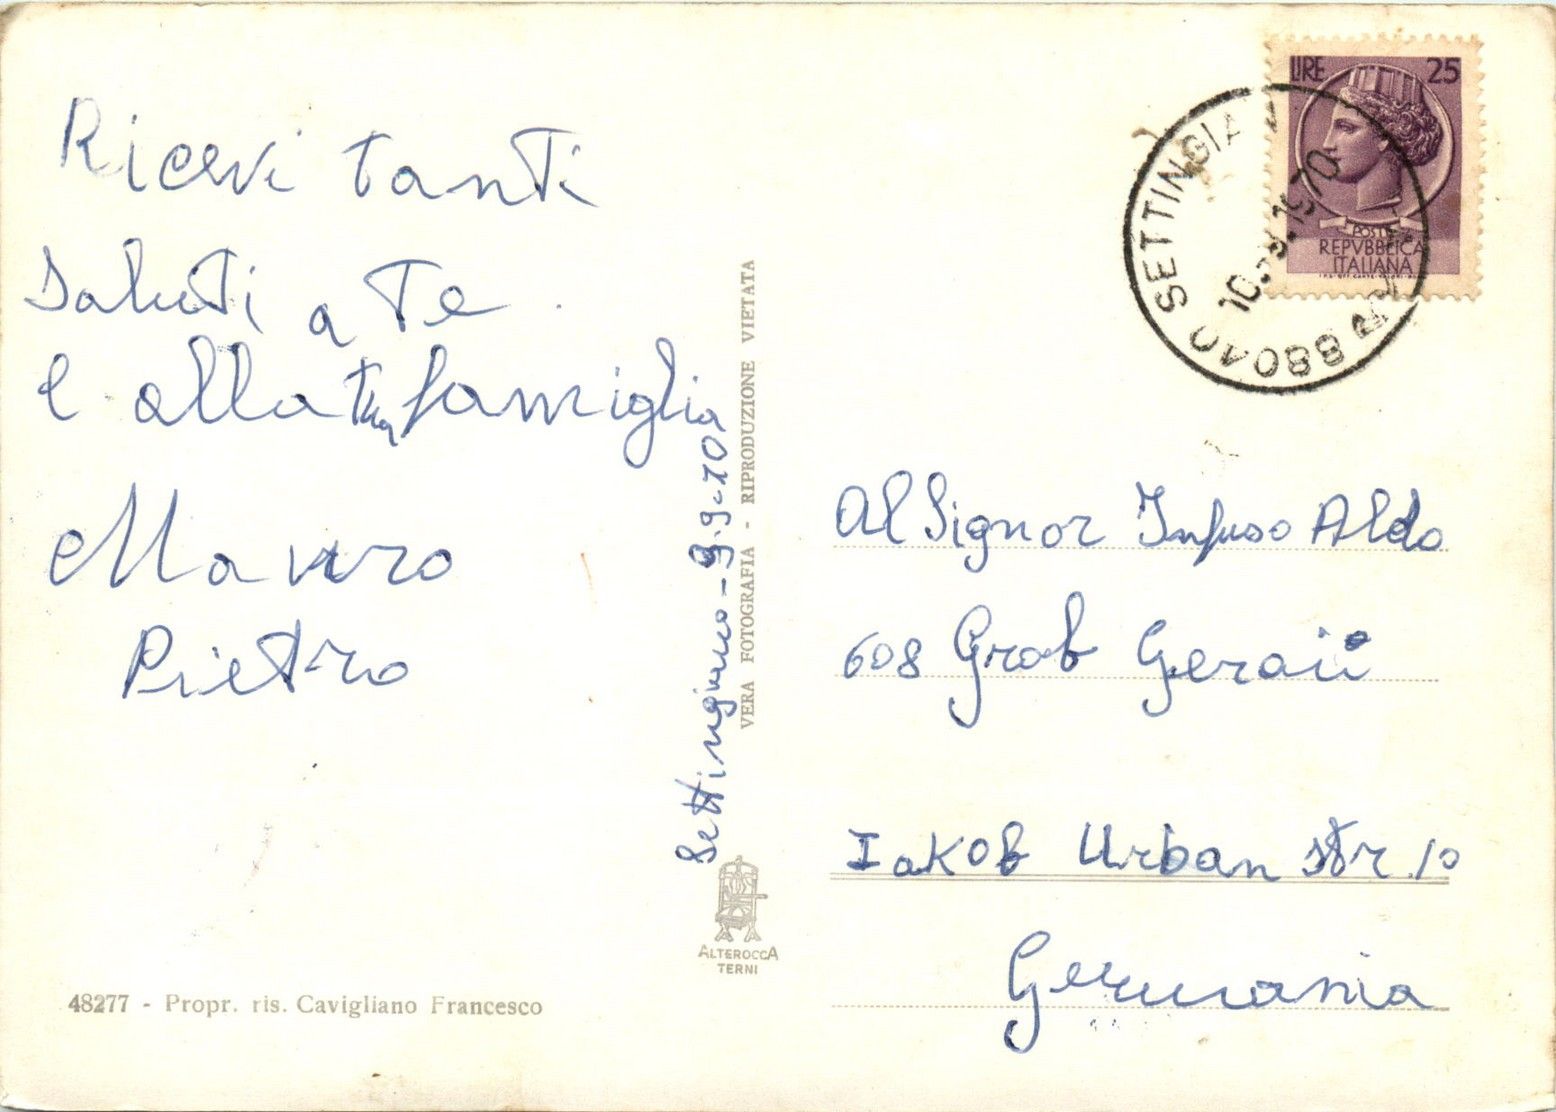 Ricevi tanti
Saluti a Te
e alla tua famiglia
Mauro
Pietro
48277 - Propr. ris. Cavigliano Francesco
Settingiano - 9-9-70
VERA FOTOGRAFIA - RIPRODUZIONE VIETATA
ALTEROCCA
TERNI
LIRE 25
POSTE
REPVBBLICA
ITALIANA
88040 SETTINGIA
10.-9.1970
Al Signor Infuso Aldo
608 Grob Geraii
Iakob Urban str. 10
Germania